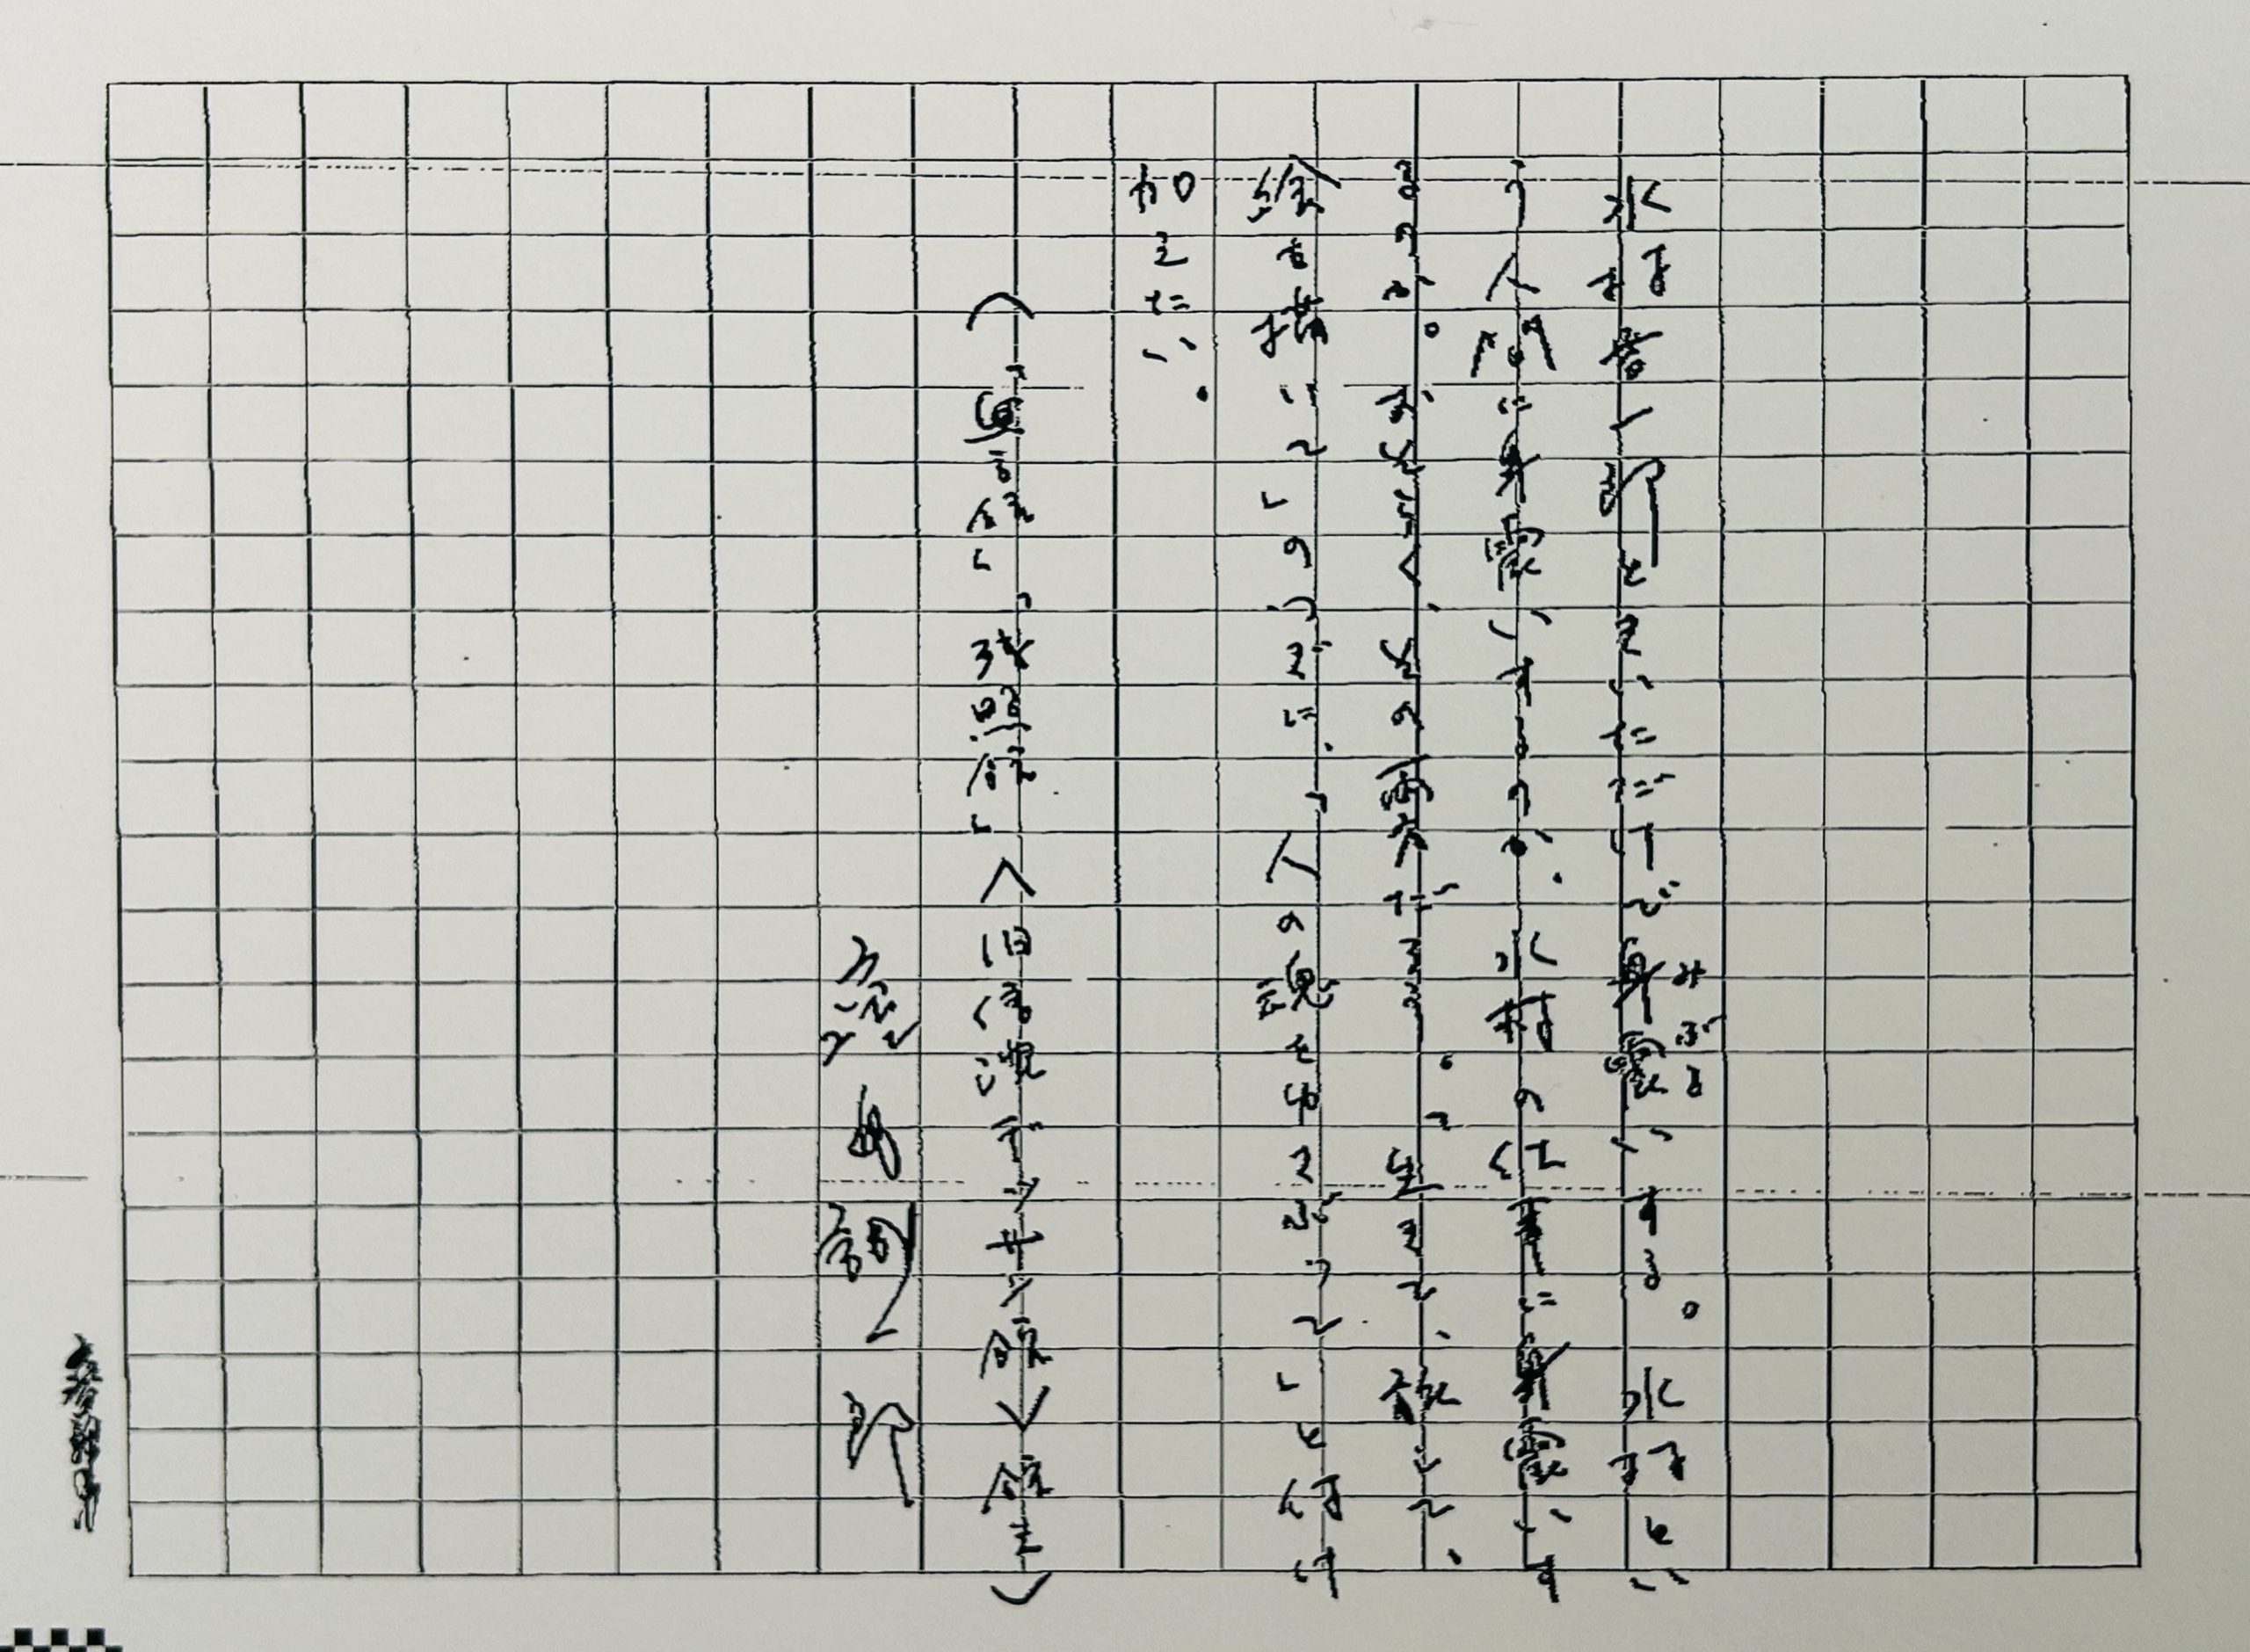 水村喜一郎ときいただけで身震いする。水村とい
みぶる
う人間に身震いするのか、水村の仕事に身震いす
るのか。おそらく、その両方だろう。「生きて、旅して、
絵を描いて」のつぎに、「人の魂をゆさぶって」と付け
加えたい。
（「無言館」、「残照館」〈旧信濃デッサン館〉館主）
窪島誠一郎